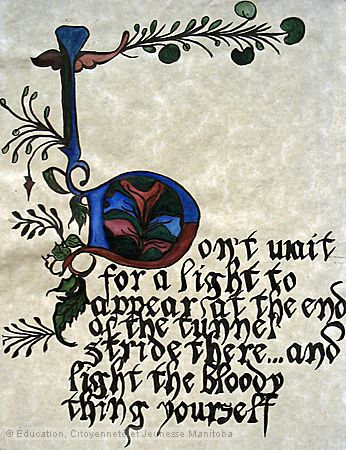 Don't wait
for a light to
appear at the end
of the tunnel
stride there...and
light the bloody
thing yourself
© Éducation, Citoyenneté et Jeunesse Manitoba